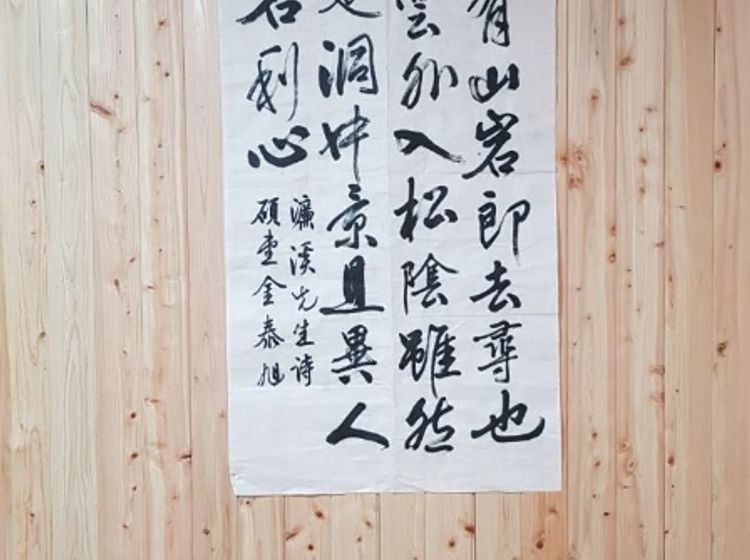 有山岩即去尋也
雲外入松陰雖然
是洞中景且異人
名利心
濂溪先生詩
碩堂金泰旭